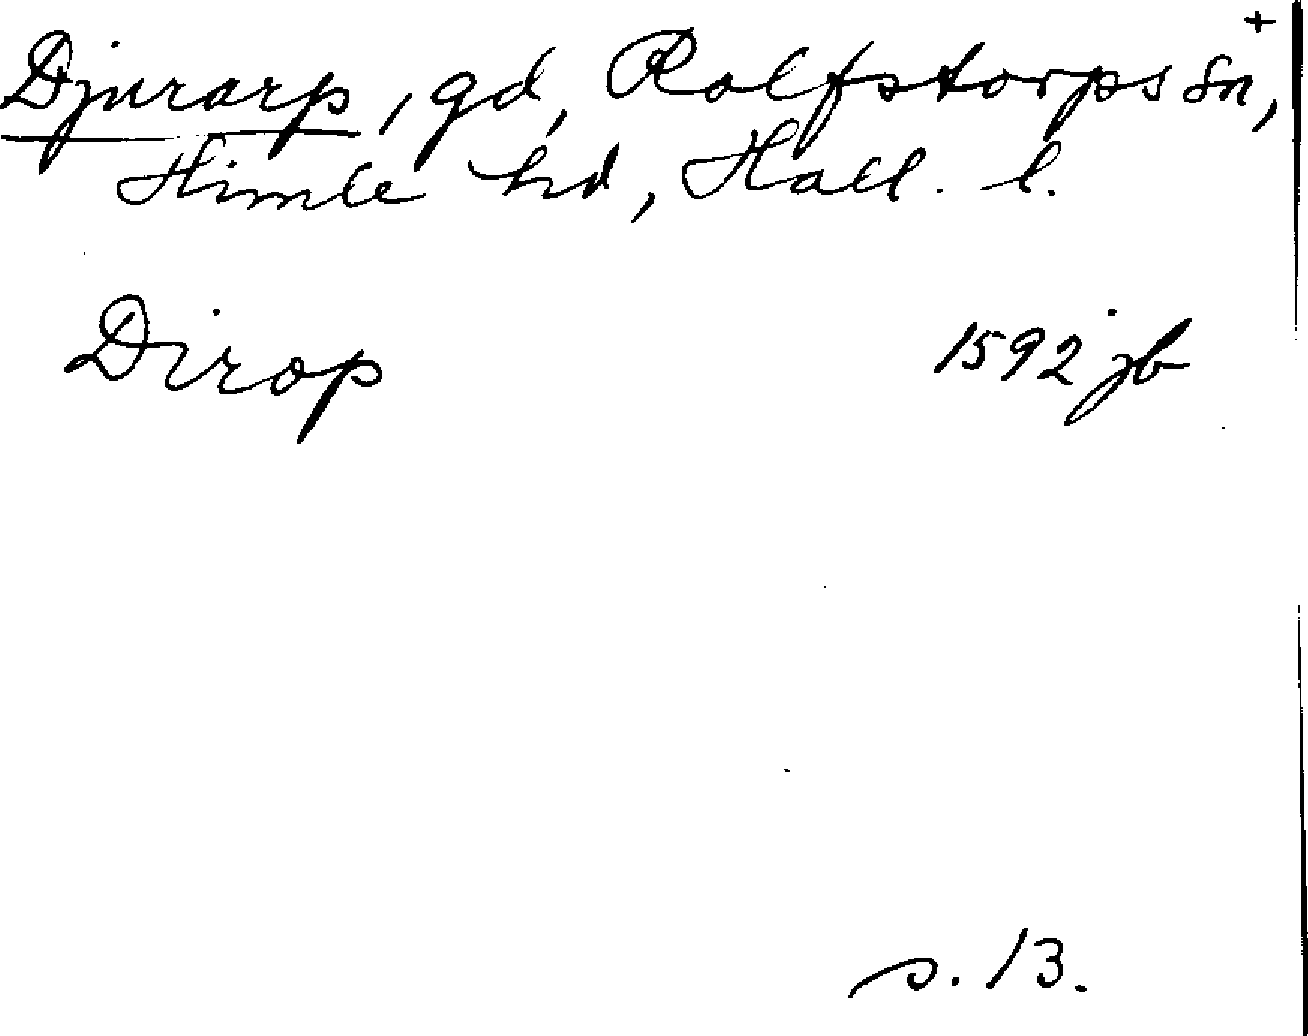 Djurarp, gd, Rolfstorps sn, +
Himle hd, Hall. l.
Dirop 1592 jb
s. 13.